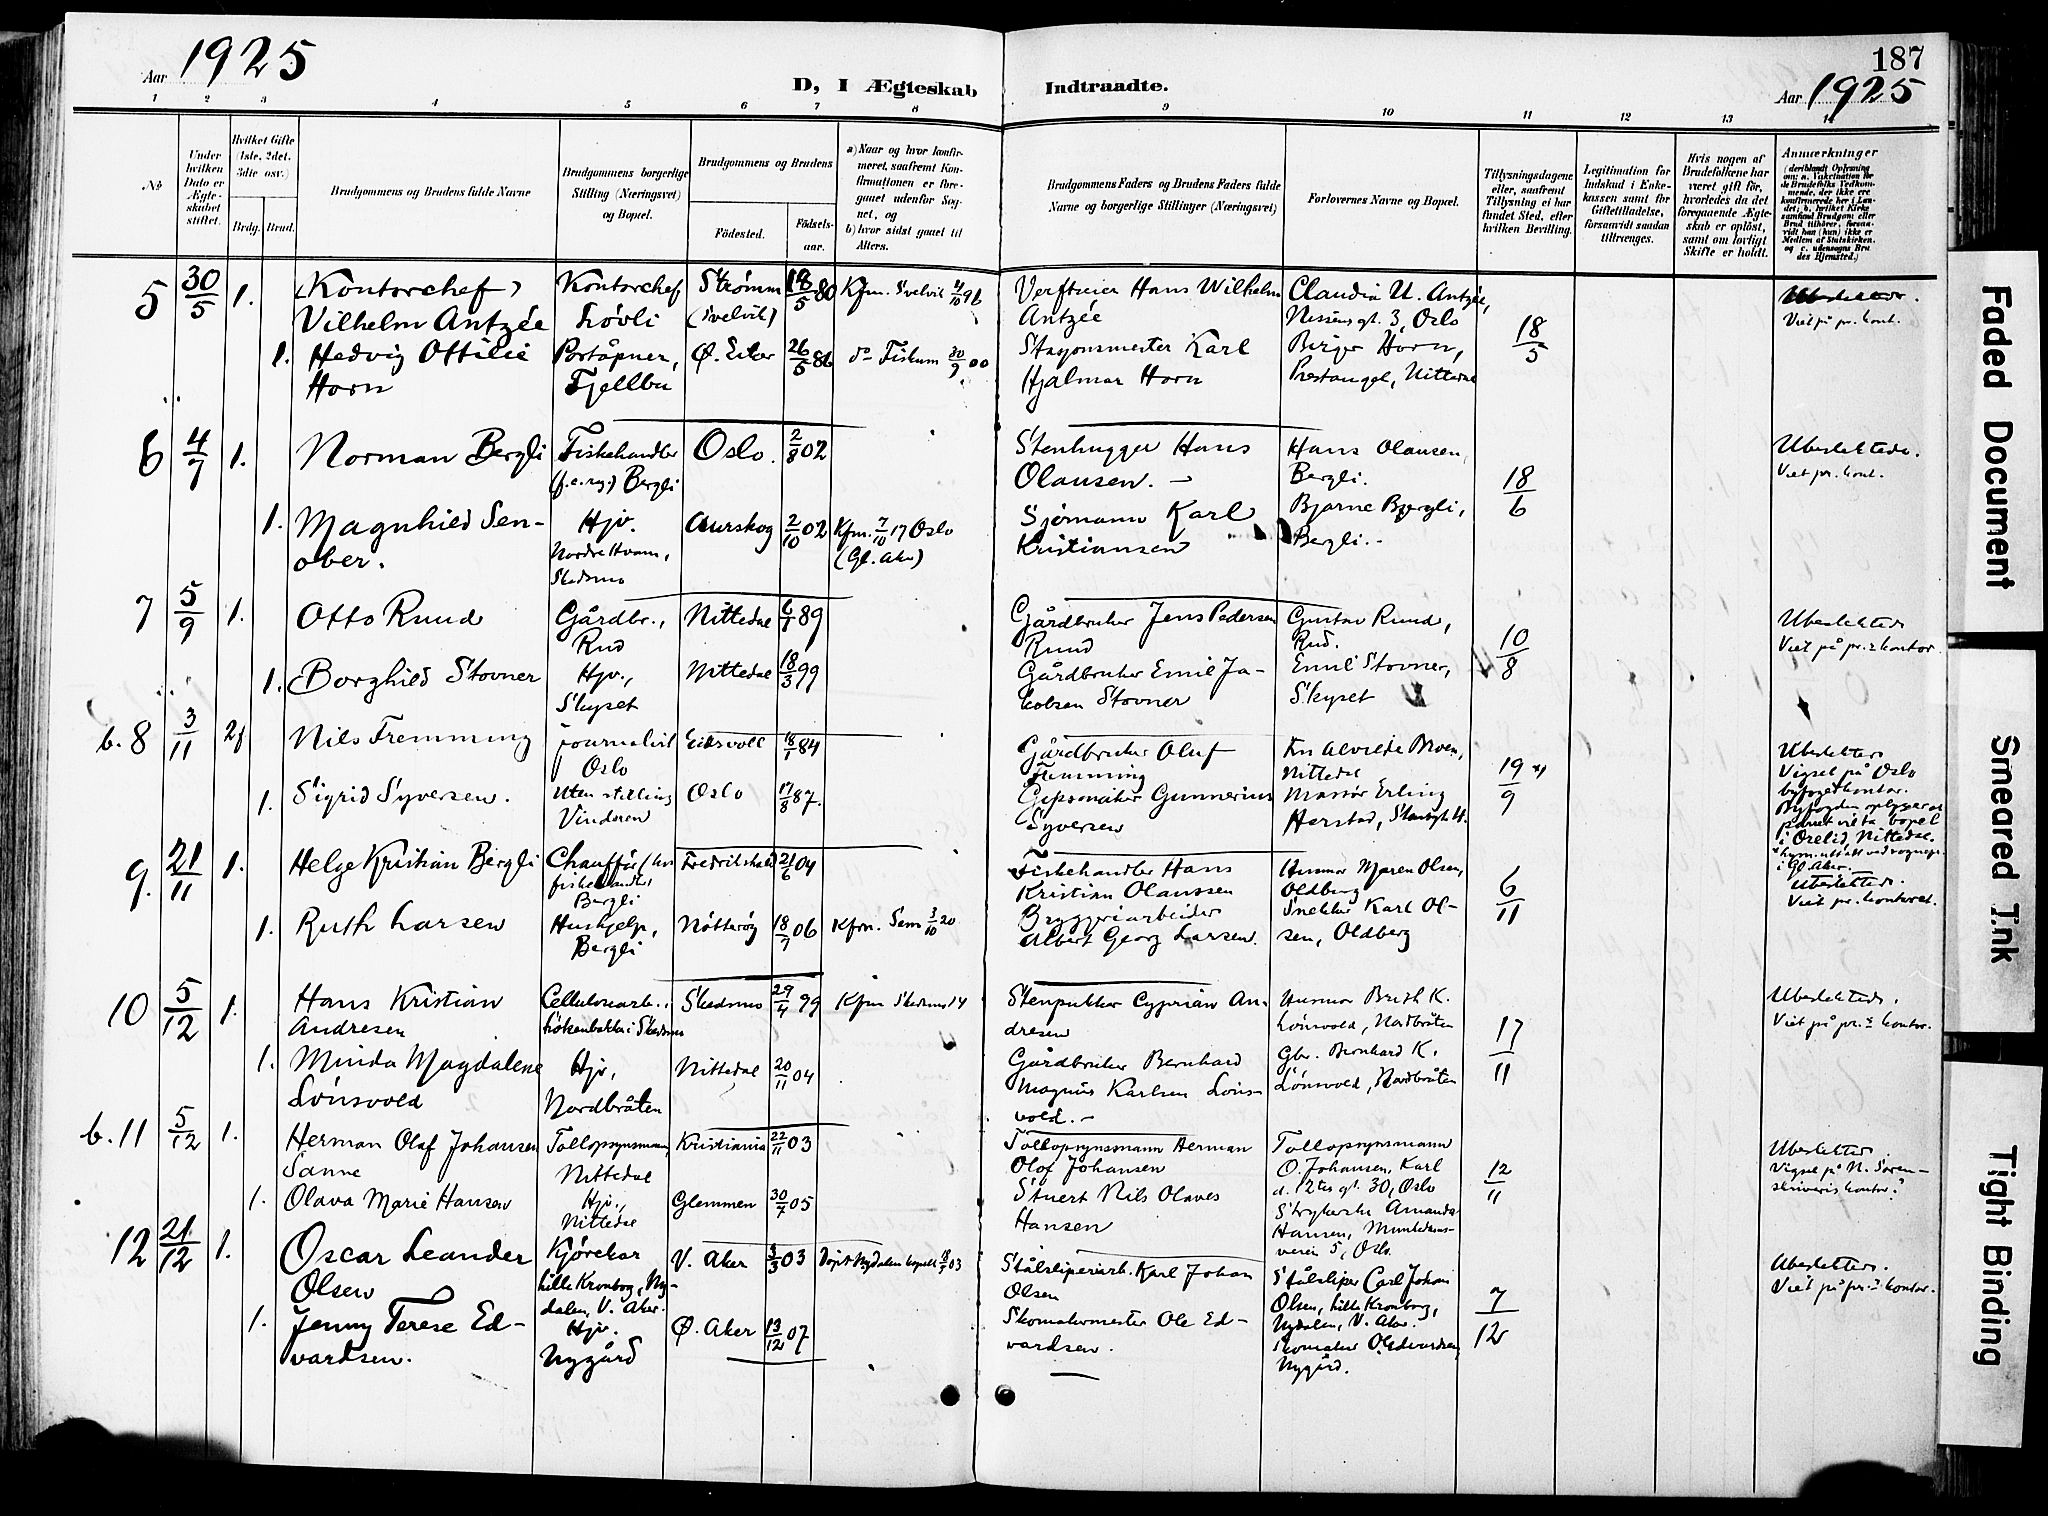 Aar 1925
D, I Ægteskab Indtraadte.
187
Aar 1925
1 2 3 4 5 6 7 8 9 10 11 12 13 14
No
Under hvilken Dato er Ægteskabet stiftet.
Hvilket Gifte (1ste, 2det, 3die osv.)
Brdg. Brud.
Brudgommens og Brudens fulde Navne
Brudgommens borgerlige Stilling (Næringsvei) og Bopæl.
Brudgommens og Brudens
Fødested. Fødselsaar.
a) Naar og hvor konfirmeret, saafremt Konfirmationen er foregaaet udenfor Sognet, og
b) hvor sidst gaaet til Alters.
Brudgommens Faders og Brudens Faders fulde Navne og borgerlige Stillinger (Næringsvei)
Forlovernes Navne og Bopæl.
Tillysningsdagene eller, saafremt Tillysning ei har fundet Sted, efter hvilken Bevilling.
Legitimation for Indskud i Enkekassen samt for Giftetilladelse, forsaavidt saadan tiltrænges.
Hvis nogen af Brudefolkene har været gift før, hvorledes da det foregaaende Ægteskab er opløst, samt om lovligt Skifte er holdt.
Anmærkninger
5 30/5 1. Kontorchef Kontorchef Strømm 18/5 80 Kfm. Svelvik 4/10 96 Verfteier Hans Wilhelm Claudia U. Antzée,
Vilhelm Antzée Løvli (Svelvik) Antzée Nissens gt. 3, Oslo 18/5 Viet på pr. kont.
1. Hedvig Ottilie Poståpner, Ø. Eiker 26/5 86 do Fiskum 30/9 00 Stasjonsmester Karl Birger Horn,
Horn Fjellbu Hjalmar Horn Prestangel, Nittedal
6 4/7 1. Norman Bergli Fiskehandler Oslo. 2/8 02 Stenhugger Hans Hans Olausen, Ubeslektede.
Bergli Olausen. – Bergli. 18/6 Viet pr. kont.
1. Magnhild Sen- Hjv. Aurskog 2/10 02 Kfm. 7/10 17 Oslo Sjømann Karl Bjarne Bergli,
ober. Nordre Hvam, (Gl. Aker) Kristiansen Bergli.
Skedsmo
7 5/9 1. Otto Ruud Gårdbr., Nittedal 6/1 89 Gårdbruker Jens Pedersen Gustav Ruud, Ubeslektede
Rud Ruud Rud. 10/8 Viet på pr.s kontor.
1. Borghild Stovner Hjv., Nittedal 18/3 99 Gårdbruker Emil Ja- Emil Stovner,
Skyset kobsen Stovner Skyset
b. 8 3/11 2g Nils Fremming journalist Eidsvoll 18/1 84 Gårdbruker Oluf Fru Alvilde Moen, Ubeslektede
Oslo Fremming Nittedal 19/9 Vigsel på Oslo
1. Sigrid Syversen. Uten stilling Oslo 17/8 87. Gipsmaker Gunnerius Massør Erling byfogedkontor.
Vinderen Syversen Herstad,
9. 21/11 1. Helge Kristian Bergli Chauffør Fredrikshald 21/6 04 Fiskehandler Hans Husmor Maren Olsen, Ubeslektede.
Bergli Kristian Olaussen Oldberg 6/11 Viet pr. kontoret.
1. Ruth Larsen Hushjelp, Nøtterøy 18/7 06 Kfm. Sem 3/10 20 Bryggeriarbeider Snekker Karl Ol-
Bergli Albert Georg Larsen. sen, Oldberg
10 5/12 1. Hans Kristian Cellulosearb. Skedsmo 29/4 99 Kfm Skedsmo 14 Stenpukker Cyprian An- Husmor Berth K. Ubeslektede.
Andresen dresen Lønsvold, Nordbråten 17/11 Viet på pr.s kontor.
1. Minda Magdalene Hjv, Nittedal 20/11 04 Gårdbruker Bernhard Gbr. Bernhard K.
Lønsvold Nordbråten Magnus Karlsen Løns- Lønsvold, Nordbråten
vold. –
b. 11 5/12 1. Herman Olaf Johansen Tollopsynsmann, Kristiania 22/11 03 Tollopsynsmann Herman Tollopsynsmann Ubeslektede
Sanne Nittedal Olaf Johansen O. Johansen, Karl 12/11 Vigsel på N. Soren-
d. 12tes gt. 30, Oslo skriveris kontor.
1. Olava Marie Hansen Hjv., Glemmen 30/7 05 Stuert Nils Olaves Strykerske Amanda
Nittedal Hansen Hansen, Munkedams-
veien 5, Oslo.
12 21/12 1. Oscar Leander Kjørekar V. Aker 3/3 03 Stålsliperiarb. Karl Johan Stålsliper Carl Johan Ubeslektede.
Olsen Lille Kronborg, Ny- Olsen Olsen, Lille Kronborg, 7/12 Viet på pr.s kontor.
dalen, V. Aker. Nydalen, V. Aker.
1. Jenny Terese Ed- Hjv. Ø. Aker 13/12 07 Skomakermester Ole Ed- Skomaker O. Edvardsen,
vardsen. Nygård vardsen. Nygård.
Faded Document
Smeared Ink
Tight Binding